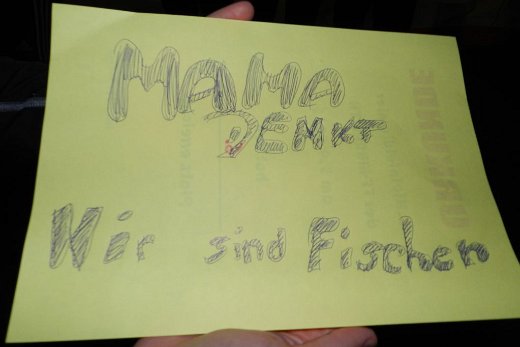 MAMA
DENKT
Wir sind Fischen